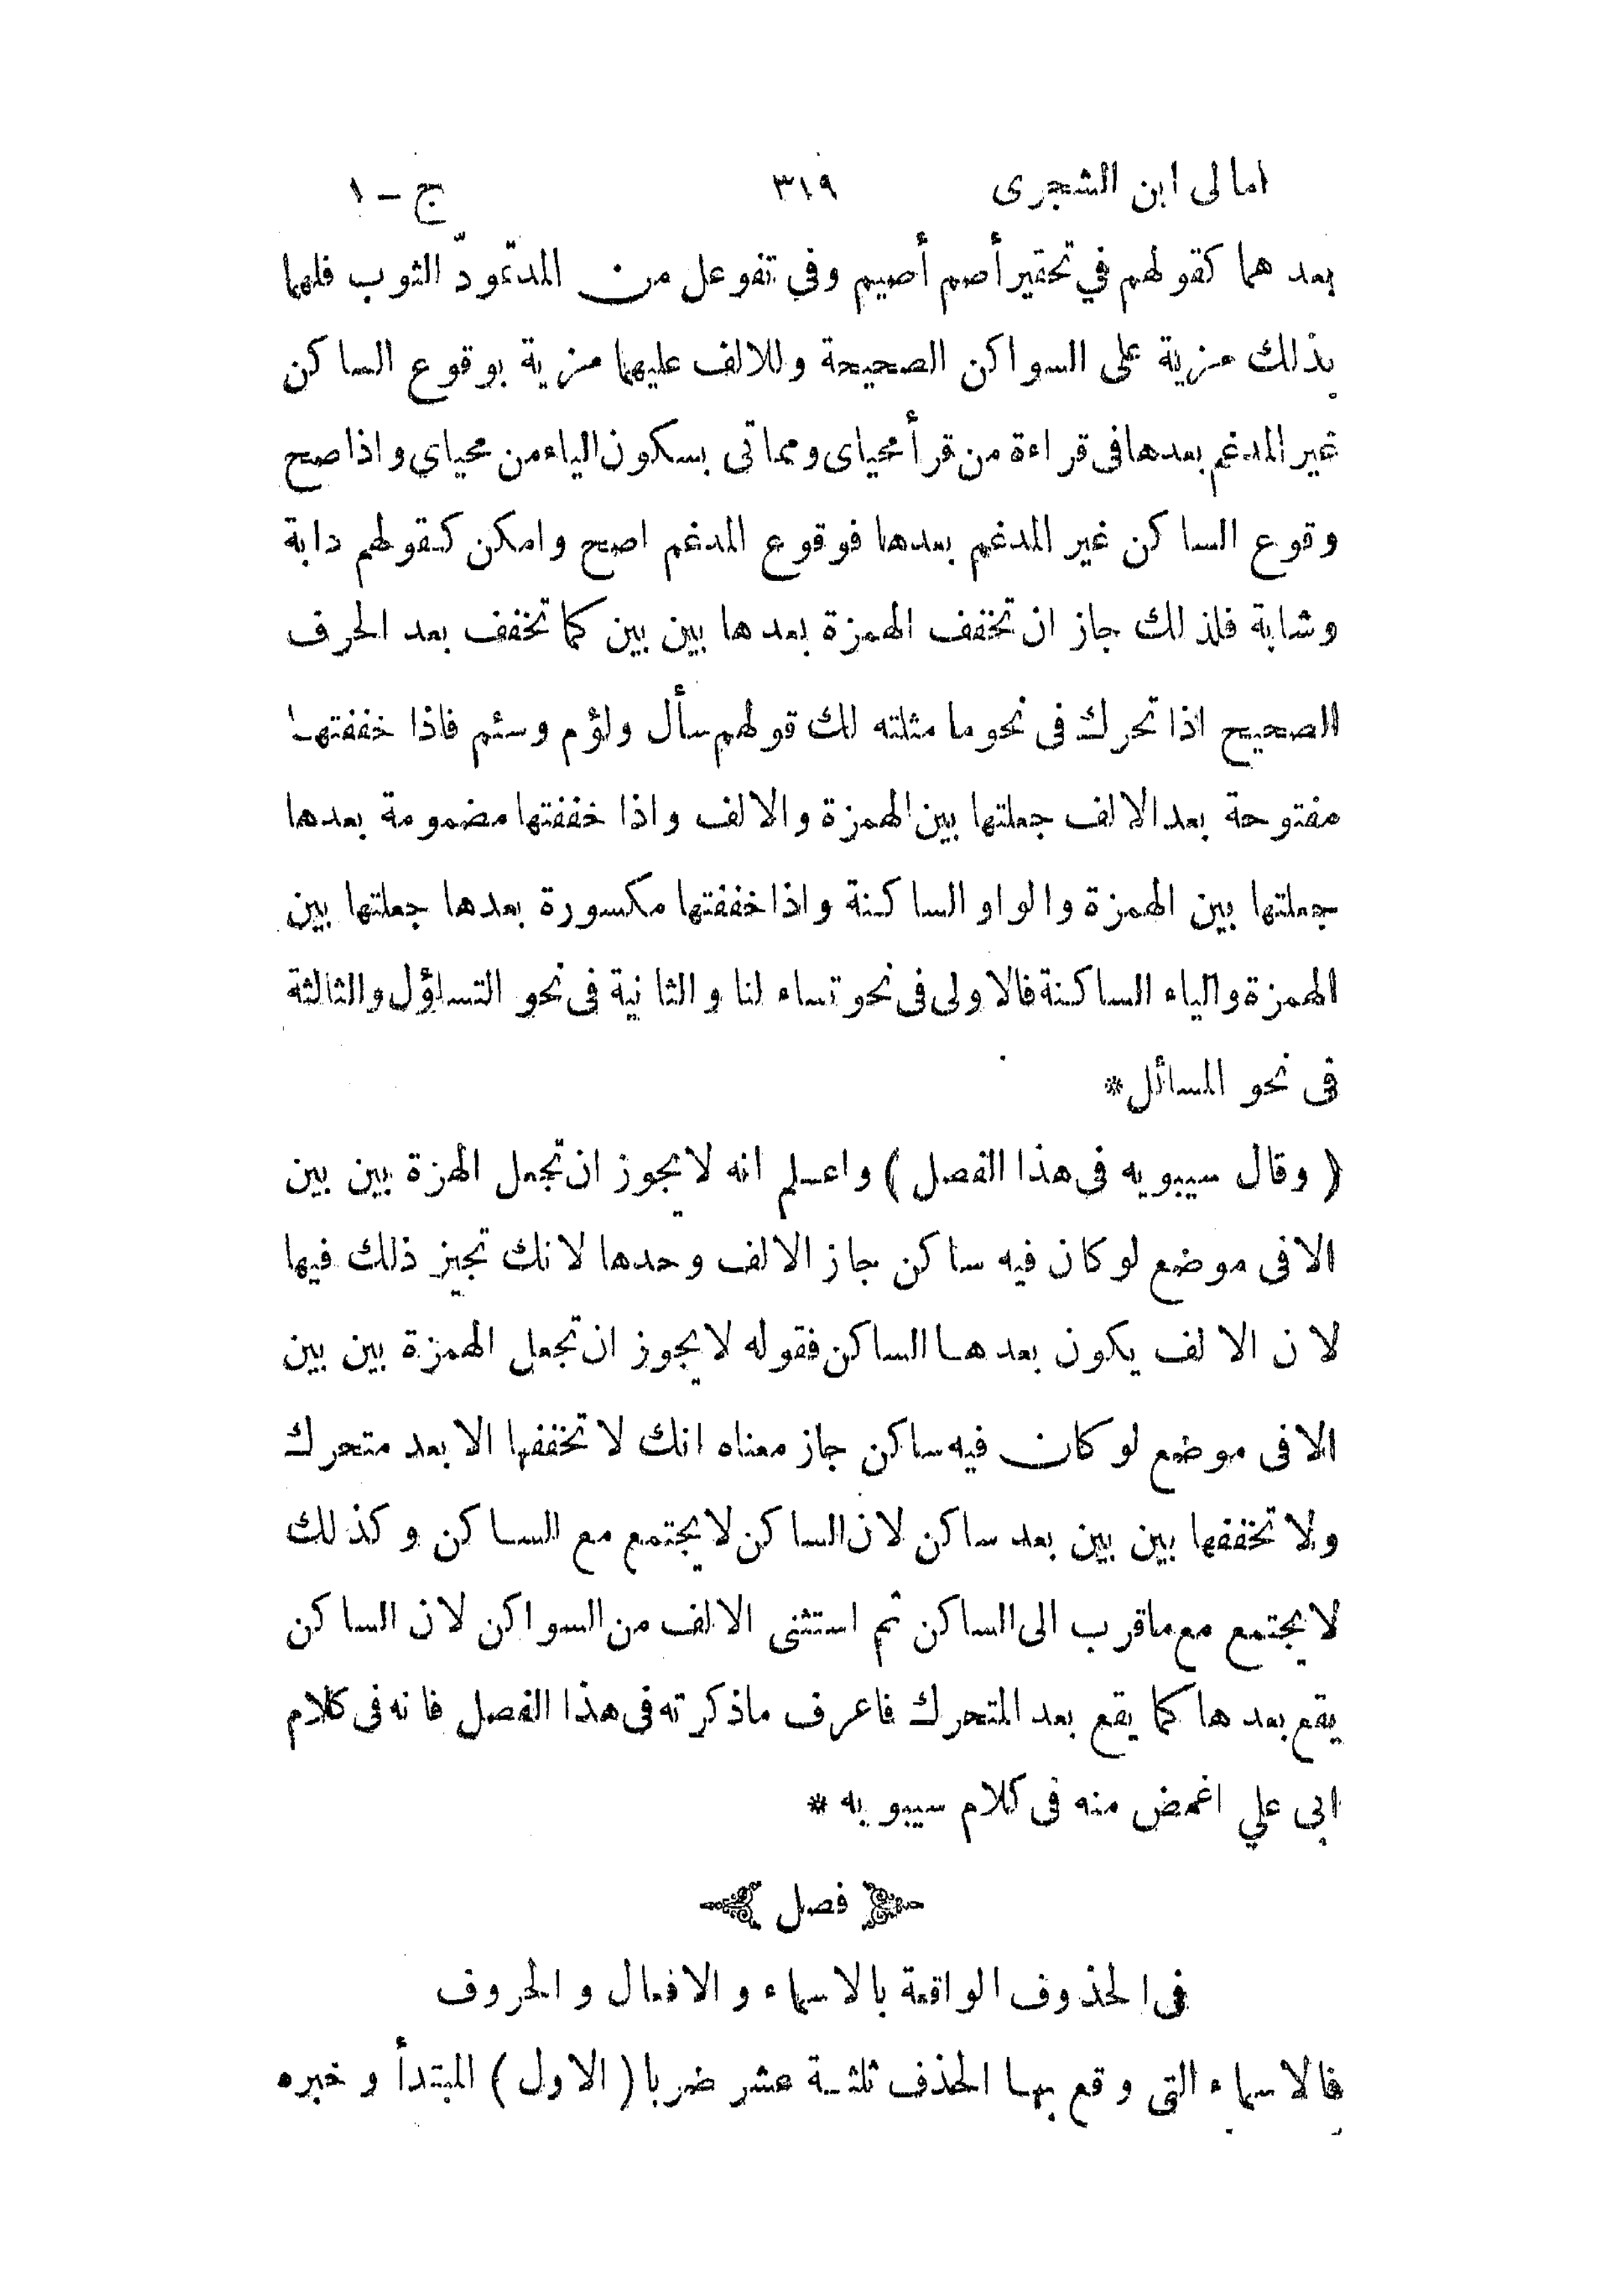 امالى ابن الشجرى ٣١٩ ج – ١
بعدهما كقولهم في تحقير أصم أصيم وفي تفوعل من المد تمّودّ الثوب فلهما
بذلك مزية على السواكن الصحيحة وللالف عليهما مزية بوقوع الساكن
غير المدغم بعدها فى قراءة من قرأ محياى ومماتى بسكون الياء من محياي واذا صح
وقوع الساكن غير المدغم بعدها فوقوع المدغم اصح وامكن كقولهم دابة
وشابة فلذلك جاز ان تخفف الهمزة بعدها بين بين كما تخفف بعد الحرف
الصحيح اذا تحرك فى نحو ما مثلته لك قولهم سأل ولؤم وسئم فاذا خففتها
مفتوحة بعد الالف جعلتها بين الهمزة والالف واذا خففتها مضمومة بعدها
جعلتها بين الهمزة والواو الساكنة واذا خففتها مكسورة بعدها جعلتها بين
الهمزة والياء الساكنة فالاولى فى نحو تساءلنا والثانية فى نحو التساؤل والثالثة
فى نحو المسائل *
( وقال سيبويه فى هذا الفصل ) واعلم انه لا يجوز ان تجعل الهمزة بين بين
الا فى موضع لو كان فيه ساكن جاز الا الف وحدها لانك تجيز ذلك فيها
لان الالف يكون بعدها الساكن فقوله لا يجوز ان تجعل الهمزة بين بين
الا فى موضع لو كان فيه ساكن جاز معناه انك لا تخففها الا بعد متحرك
ولا تخففها بين بين بعد ساكن لان الساكن لا يجتمع مع الساكن وكذلك
لا يجتمع مع ما قرب الى الساكن ثم استثنى الالف من السواكن لان الساكن
يقع بعدها كما يقع بعد المتحرك فاعرف ما ذكرته فى هذا الفصل فانه فى كلام
ابى علي اغمض منه فى كلام سيبويه *
فصل
فى الحذوف الواقعة بالاسماء والافعال والحروف
فالاسماء التى وقع بها الحذف ثلثة عشر ضربا ( الاول ) المبتدأ وخبره